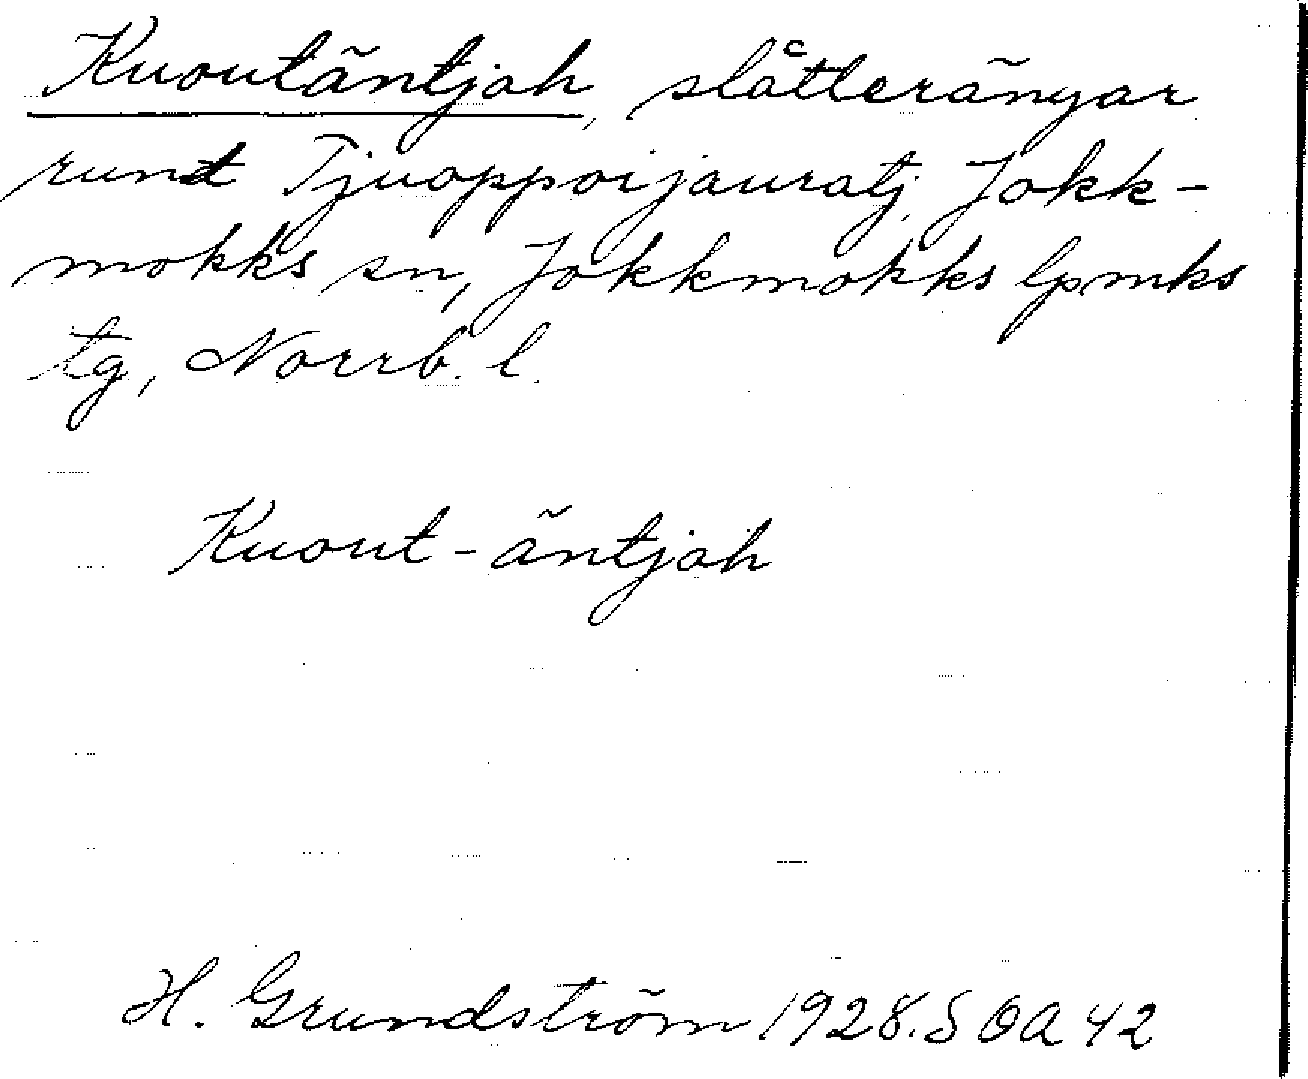 Kuoutäntjah, slåtterängar
runt Tjuoppoijauratj, Jokk-
mokks sn, Jokkmokks lpmks
tg, Norrb. l.
Kuout-äntjah
H. Grundström 1928. S OA 42